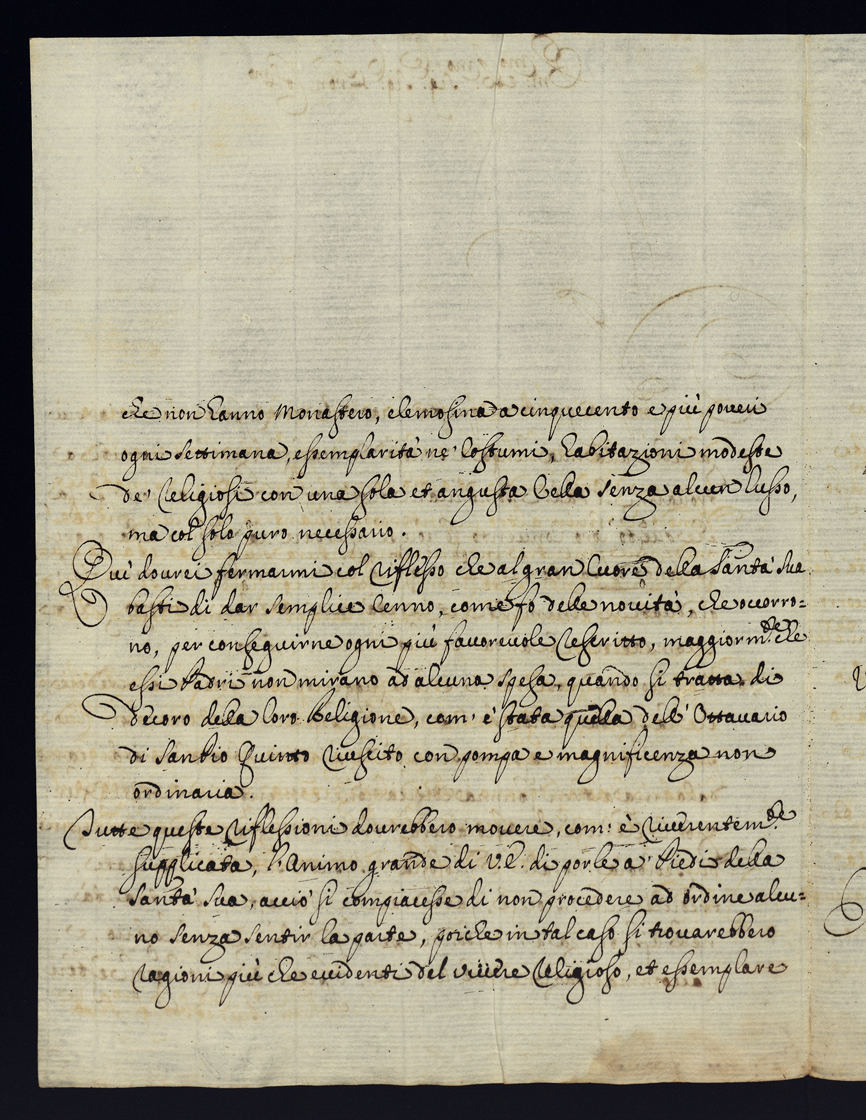 che non hanno Monastero, elemosina a cinquecento e più poveri
ogni settimana, essemplarità ne' Costumi, habitazioni modeste
de' Religiosi con una sola et angusta Cella senza alcun lusso,
ma col solo puro necessario.
Quì dourei fermarmi col riflesso che al gran Cuore della Santà Sua
basti di dar semplice Cenno, come fò delle novità, che occorro=
no, per conseguirne ogni più favorevole Rescritto, maggiorm.te che
essi Padri non mirano ad alcuna spesa, quando si tratta di
decoro della loro Religione, com' è stata quella dell' Ottavario
di San Pio Quinto riuscito con pompa e magnificenza non
ordinaria.
Tutte queste riflessioni dourebbero movere, com' è riverentem.te
supplicata, l'Animo grande di V.E. di porle a' Piedi della
Santà Sua, acciò si compiacesse di non procedere ad ordine alcu=
no senza sentir la parte, poiche in tal caso si trouarebbero
ragioni più che evidenti del vivere Religioso, et essemplare